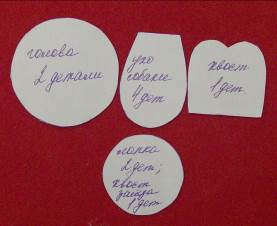 голова
2 детали
ухо
собаке
4 дет
хвост
1 дет.
лапка
2 дет;
хвост
зайца
1 дет